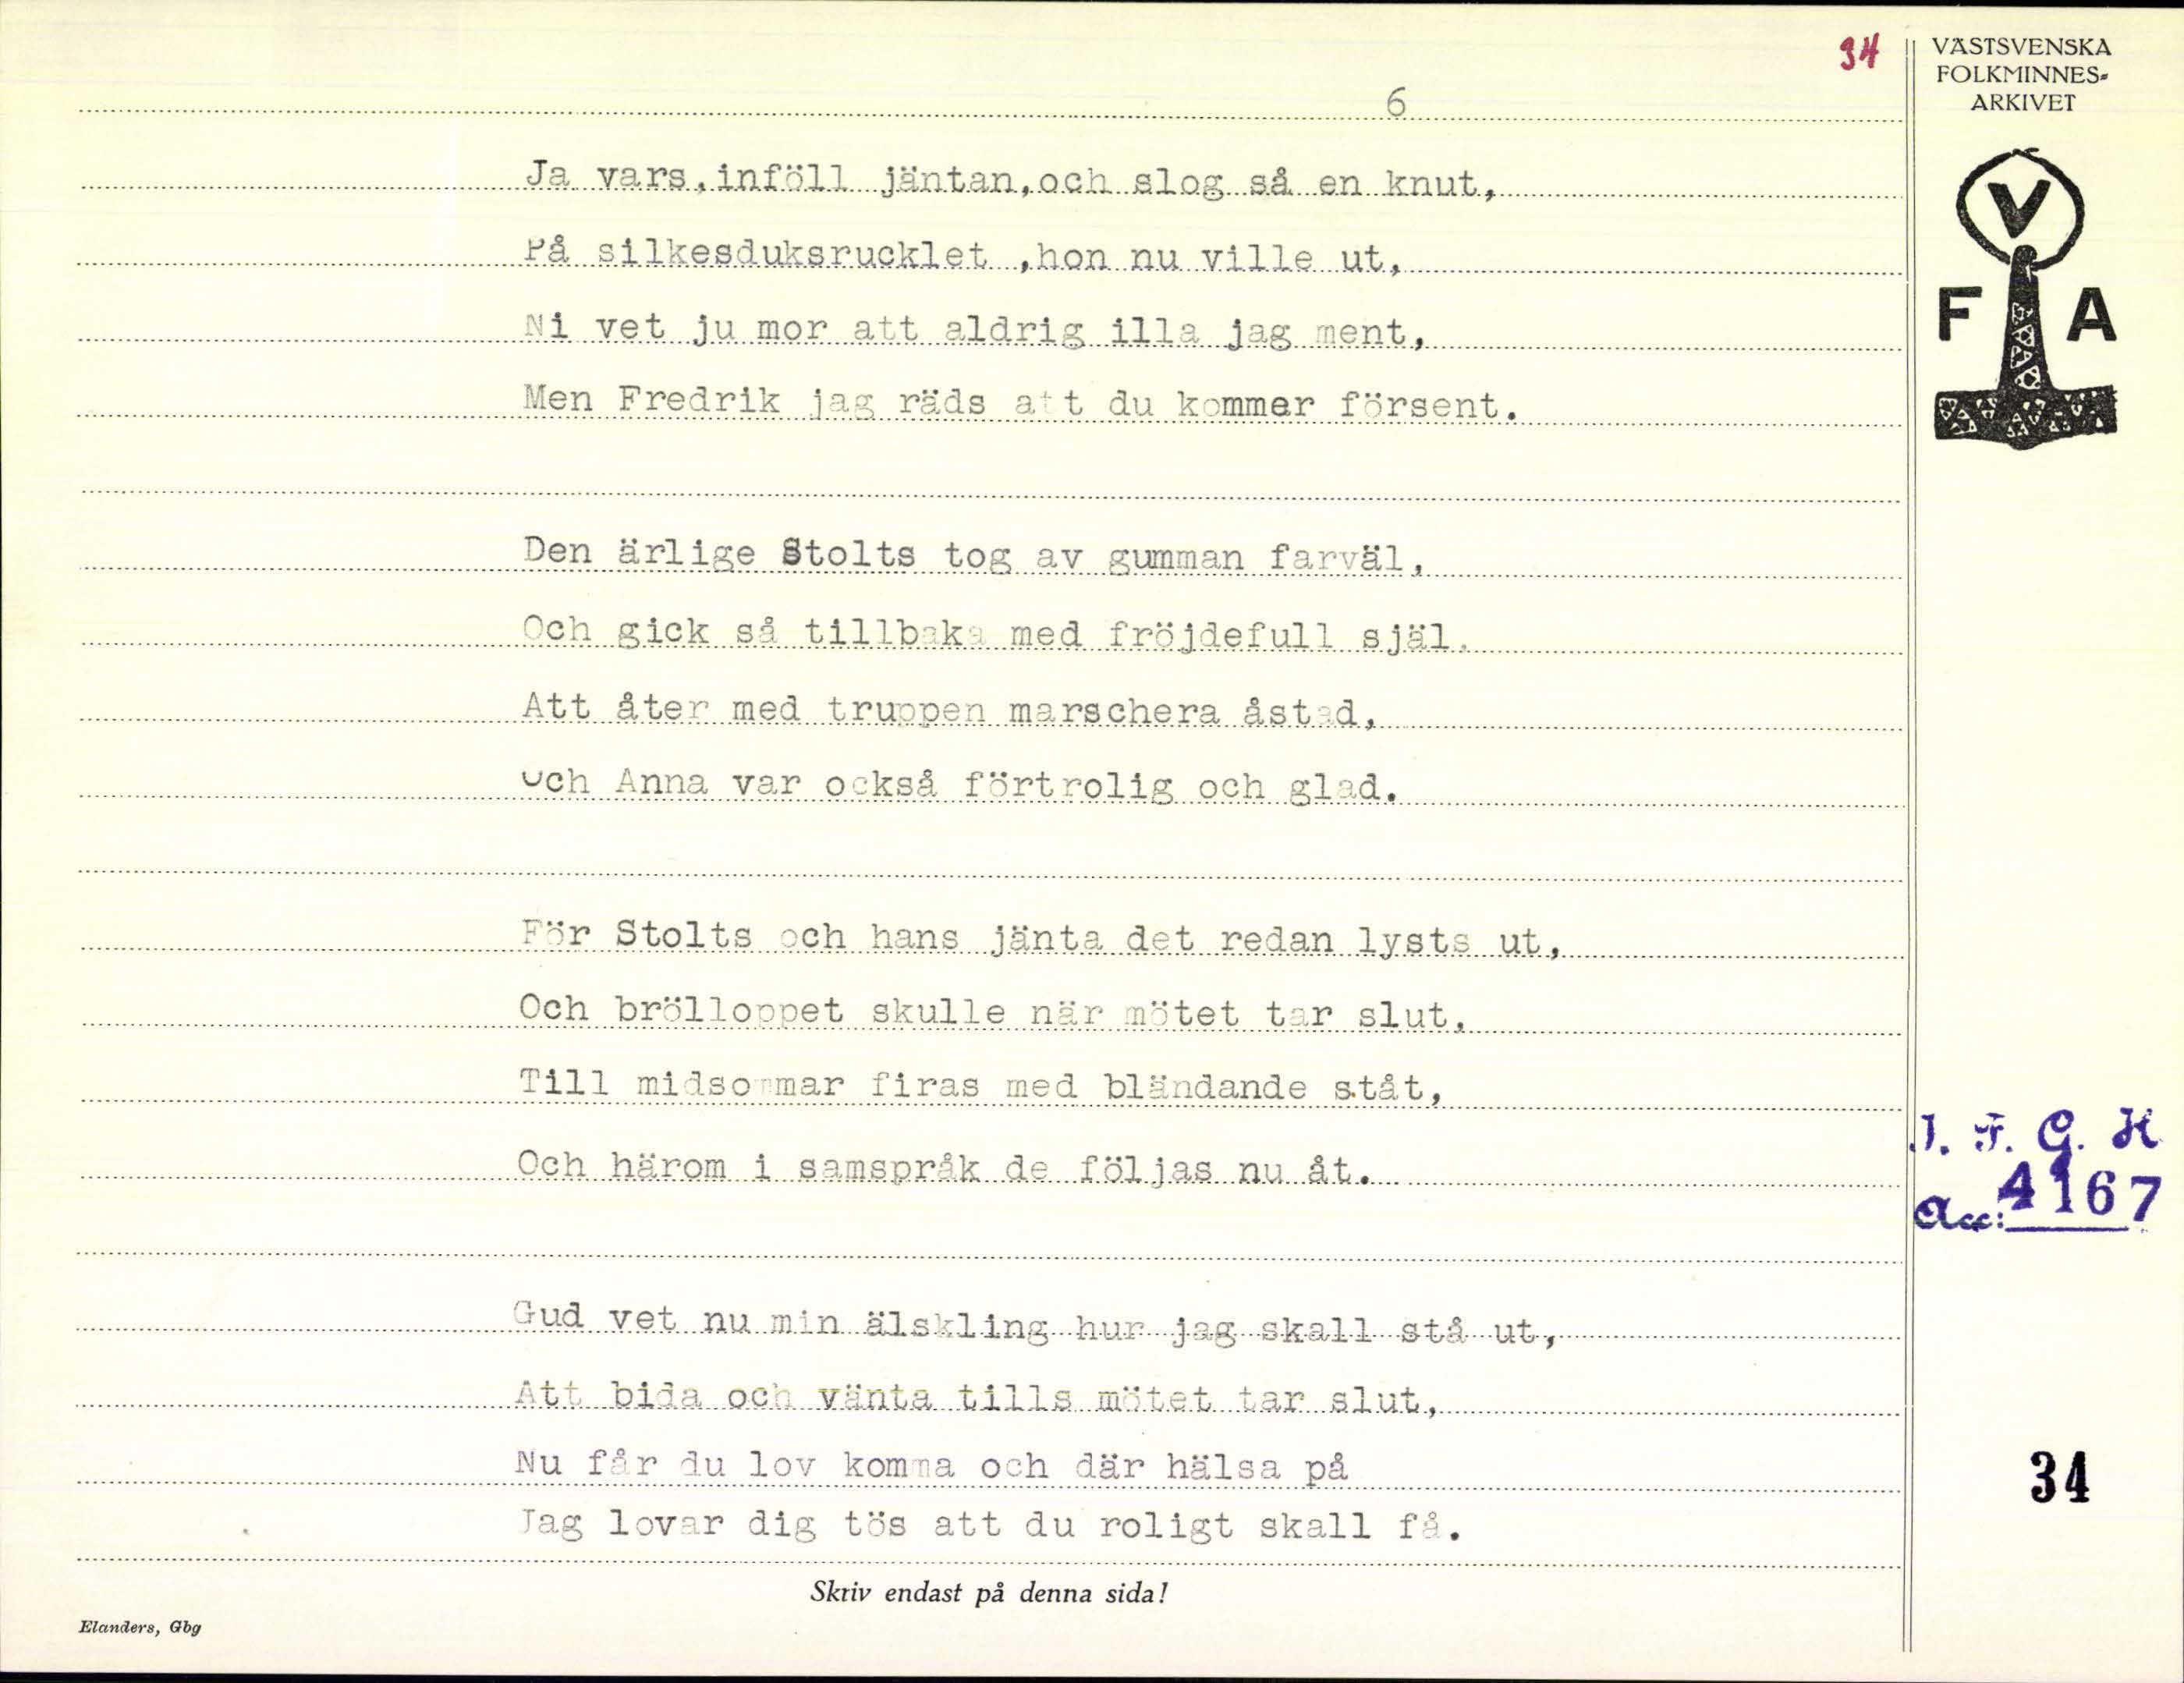 34
VÄSTSVENSKA
FOLKMINNES-
ARKIVET
6
Ja vars, inföll jäntan, och slog så en knut,
På silkesduksrucklet ,hon nu ville ut,
Ni vet ju mor att aldrig illa jag ment,
Men Fredrik jag räds att du kommer försent.
V
F A
Den ärlige Stolts tog av gumman farväl,
Och gick så tillbaka med fröjdefull själ.
Att åter med truppen marschera åstad,
Och Anna var också förtrolig och glad.
För Stolts och hans jänta det redan lysts ut,
Och brölloppet skulle när mötet tar slut,
Till midsommar firas med bländande ståt,
Och härom i samspråk de följas nu åt.
I. F. G. H
Acc: 4167
Gud vet nu min älskling hur jag skall stå ut,
Att bida och vänta tills mötet tar slut,
Nu får du lov komma och där hälsa på
Jag lovar dig tös att du roligt skall få.
34
Skriv endast på denna sida!
Elanders, Gbg